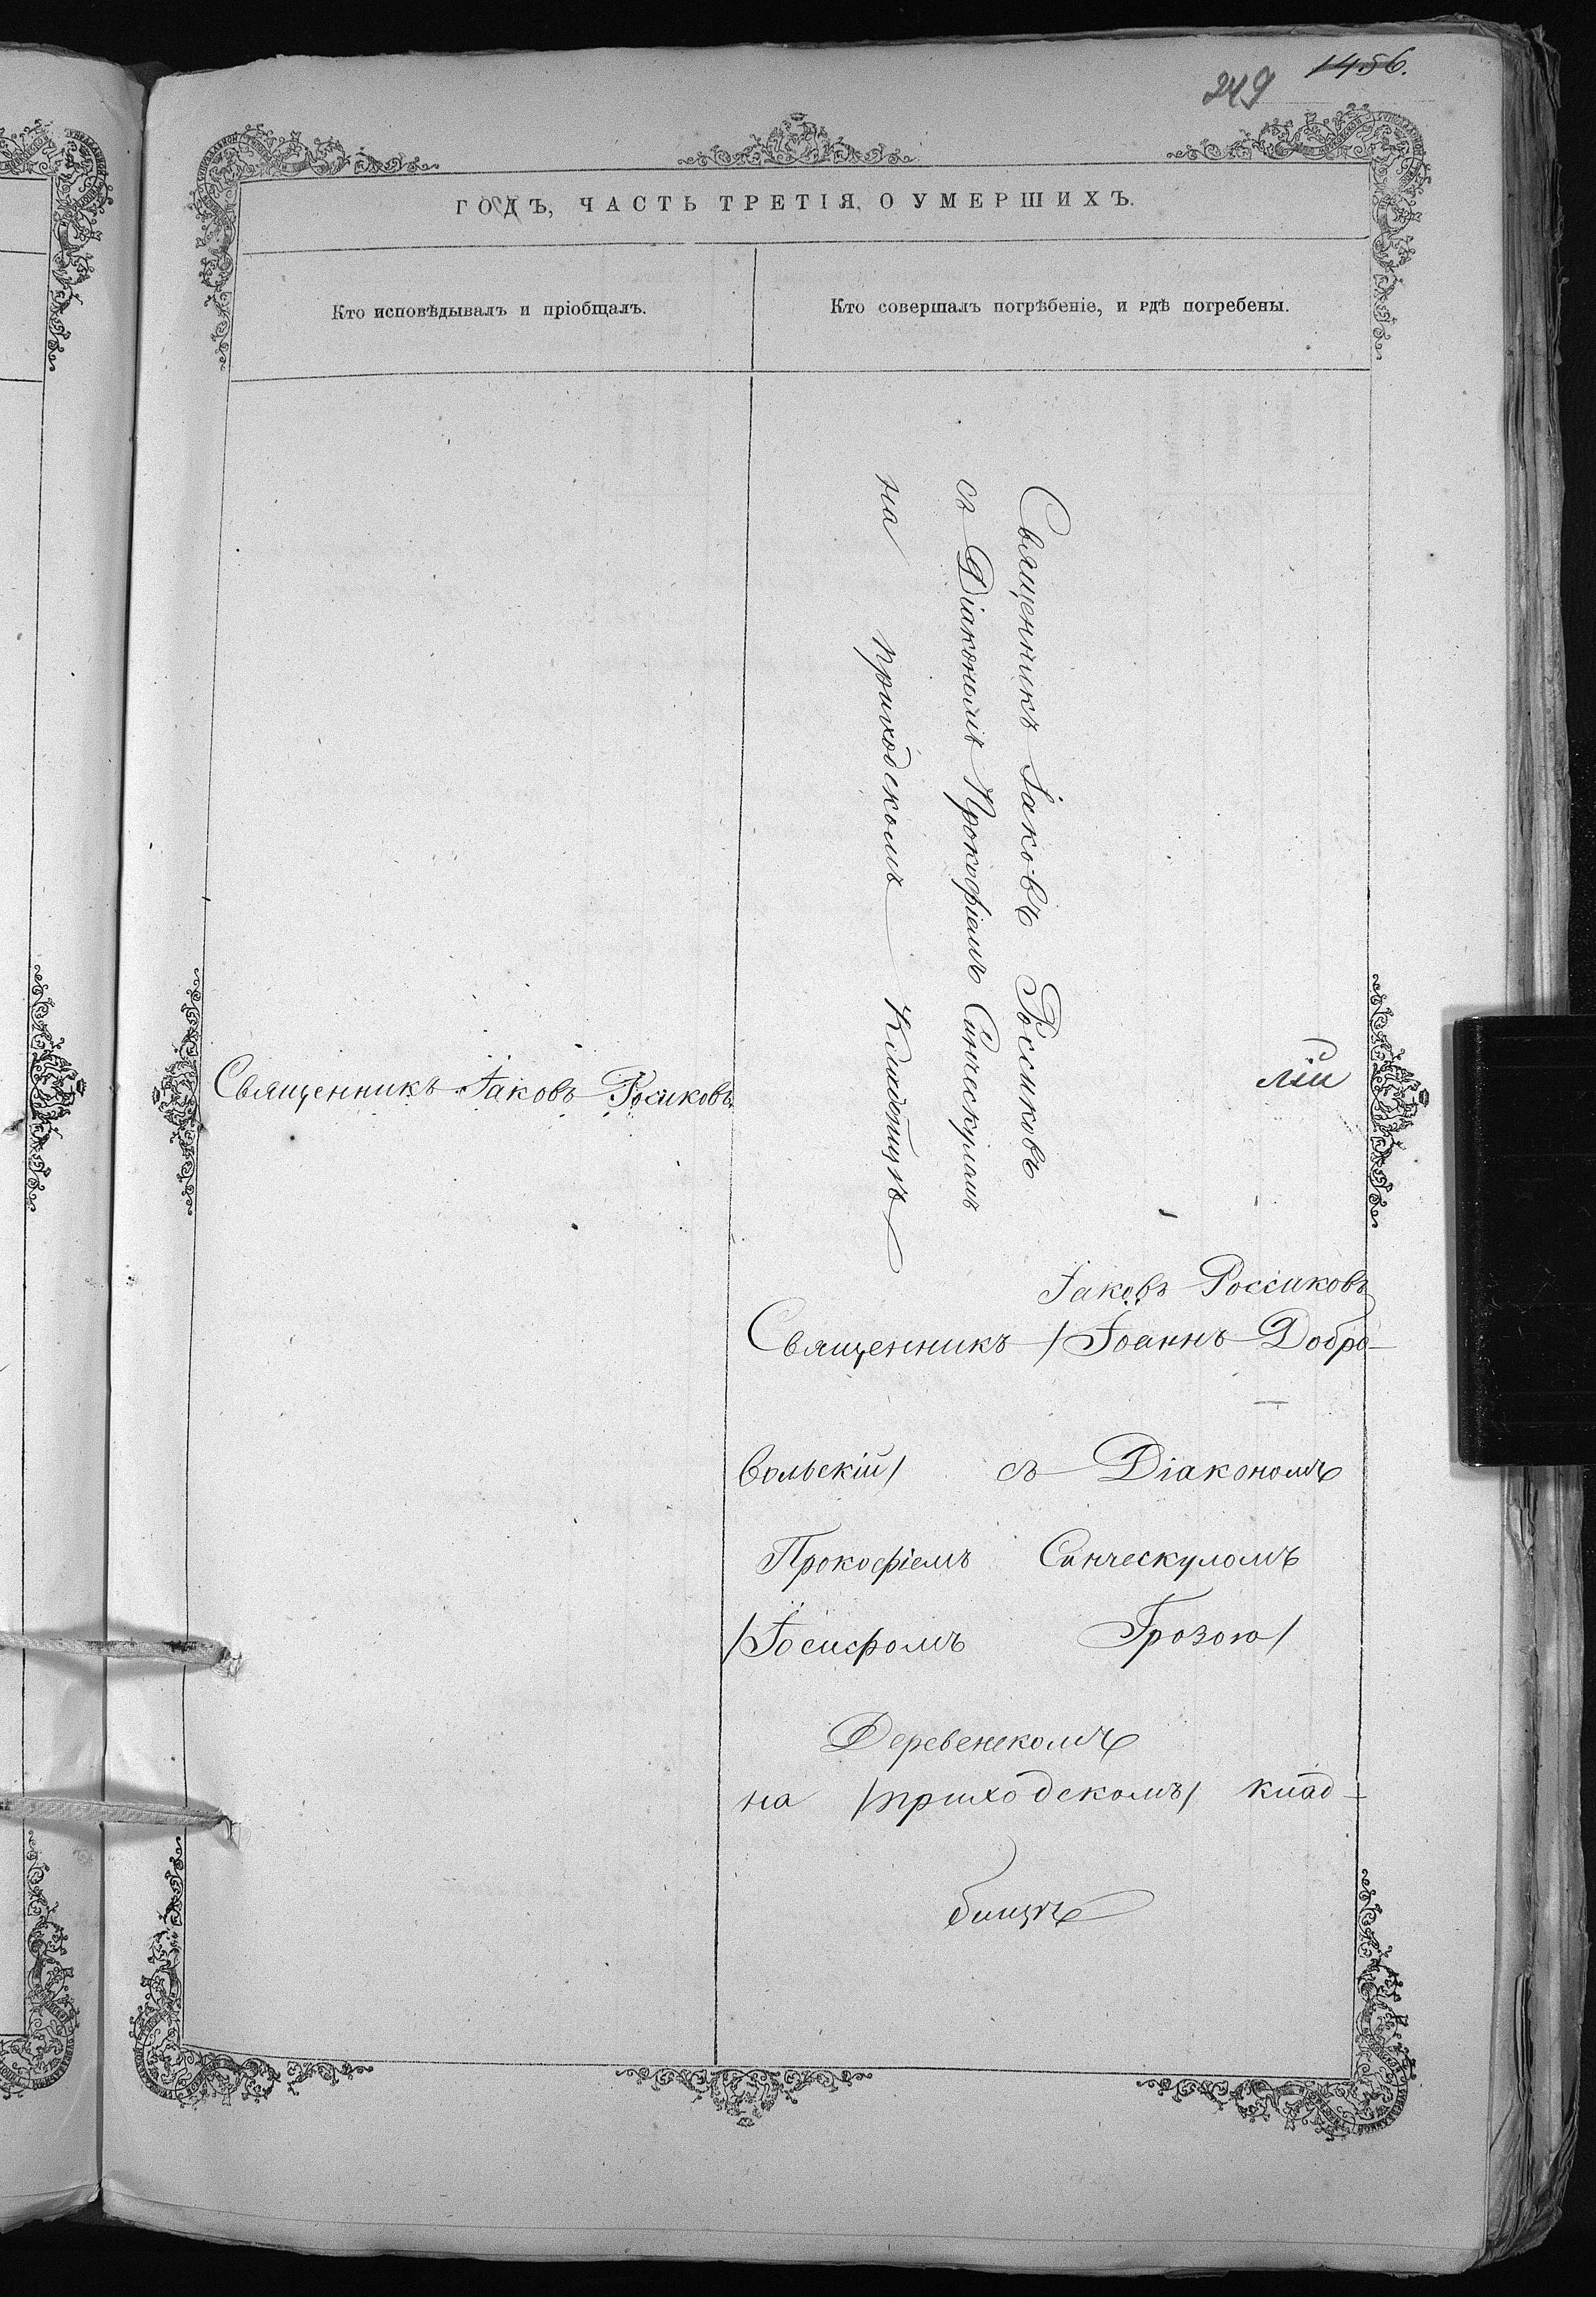 249 1456.
ГОДЪ, ЧАСТЬ ТРЕТІЯ, О УМЕРШИХЪ.
Кто исповѣдывалъ и пріобщалъ.
Кто совершалъ погрѣбеніе, и гдѣ погребены.
Священникъ Іаковъ Россиковъ
съ Діакономъ Прокофіемъ Синческуломъ
на приходскомъ Кладбищѣ
Священникъ Іаковъ Росиковъ
Іаковъ Россиковъ
Священникъ /Іоаннъ Добро-
вольскій/ съ Діакономъ
Прокофіемъ Синческуломъ
/Іосифомъ Грозою/
Деревенскомъ
на /приходскомъ/ клад-
бищѣ